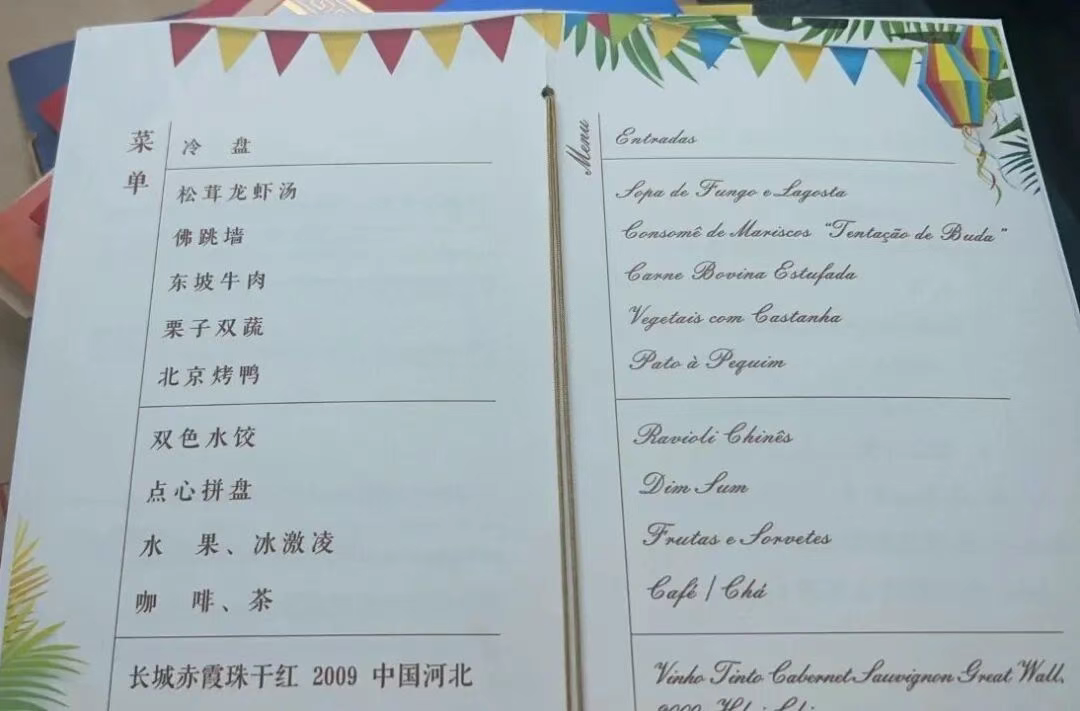 菜单
冷 盘
松茸龙虾汤
佛跳墙
东坡牛肉
栗子双蔬
北京烤鸭
双色水饺
点心拼盘
水 果、冰激凌
咖 啡、茶
长城赤霞珠干红 2009 中国河北
Menu
Entradas
Sopa de Fungo e Lagosta
Consomê de Mariscos "Tentação de Buda"
Carne Bovina Estufada
Vegetais com Castanha
Pato à Pequim
Ravioli Chinês
Dim Sum
Frutas e Sorvetes
Café / Chá
Vinho Tinto Cabernet Sauvignon Great Wall,